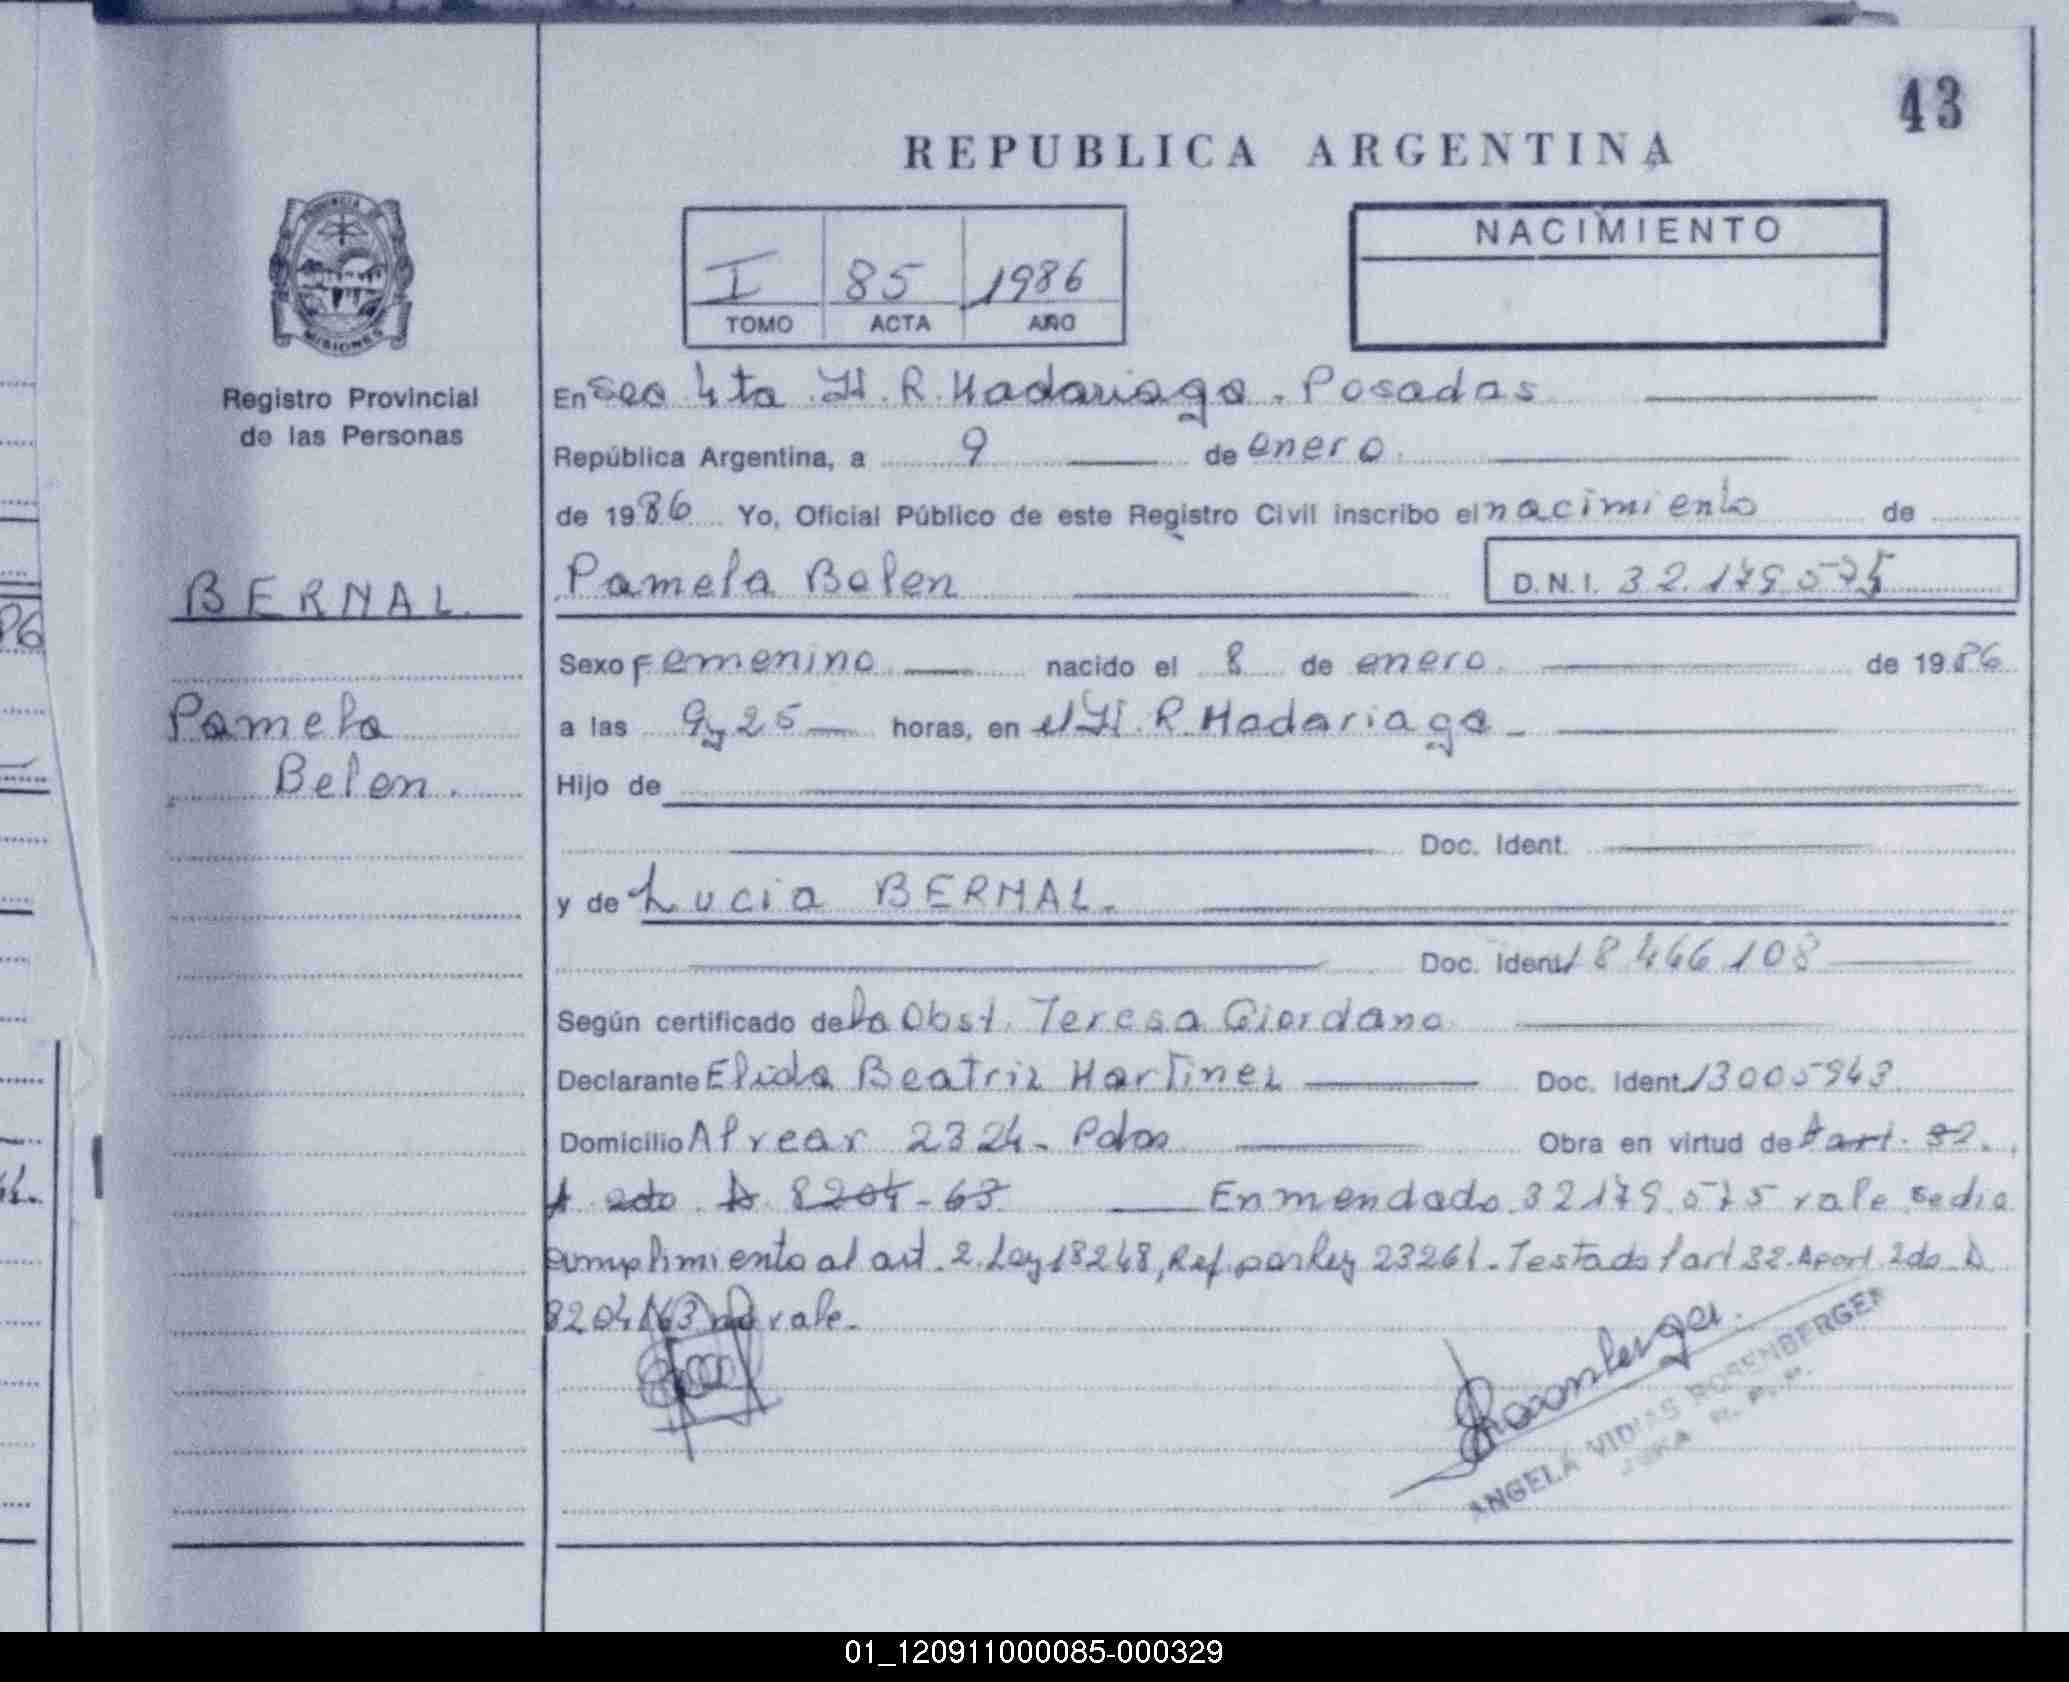 43
REPUBLICA ARGENTINA
PROVINCIA DE
MISIONES
Registro Provincial
de las Personas
I 85 1986
TOMO ACTA AÑO
NACIMIENTO
En Sec 4ta H. R. Madariaga. Posadas
República Argentina, a 9 de enero
de 1986 Yo, Oficial Público de este Registro Civil inscribo el nacimiento de
BERNAL
Pamela Belen
D.N.I. 32.179.575
Sexo Femenino nacido el 8 de enero de 1986
Pamela
Belen.
a las 9 y 25 horas, en el H. R. Madariaga
Hijo de
Doc. Ident.
y de Lucia BERNAL.
Doc. Ident 18466108
Según certificado de la Obst. Teresa Giordano
Declarante Elida Beatriz Martinez Doc. Ident. 13005943
Domicilio Alvear 2324 - Pdas Obra en virtud de art. 32.
2do D. 8204-63 Enmendado 32179.575 vale se dio
cumplimiento al art. 2. Ley 18248, Ref. por Ley 23261 - Testado art 32. Apart. 2do D
8204/63 no vale.
ANGELA ROSENBERGER
01_120911000085-000329